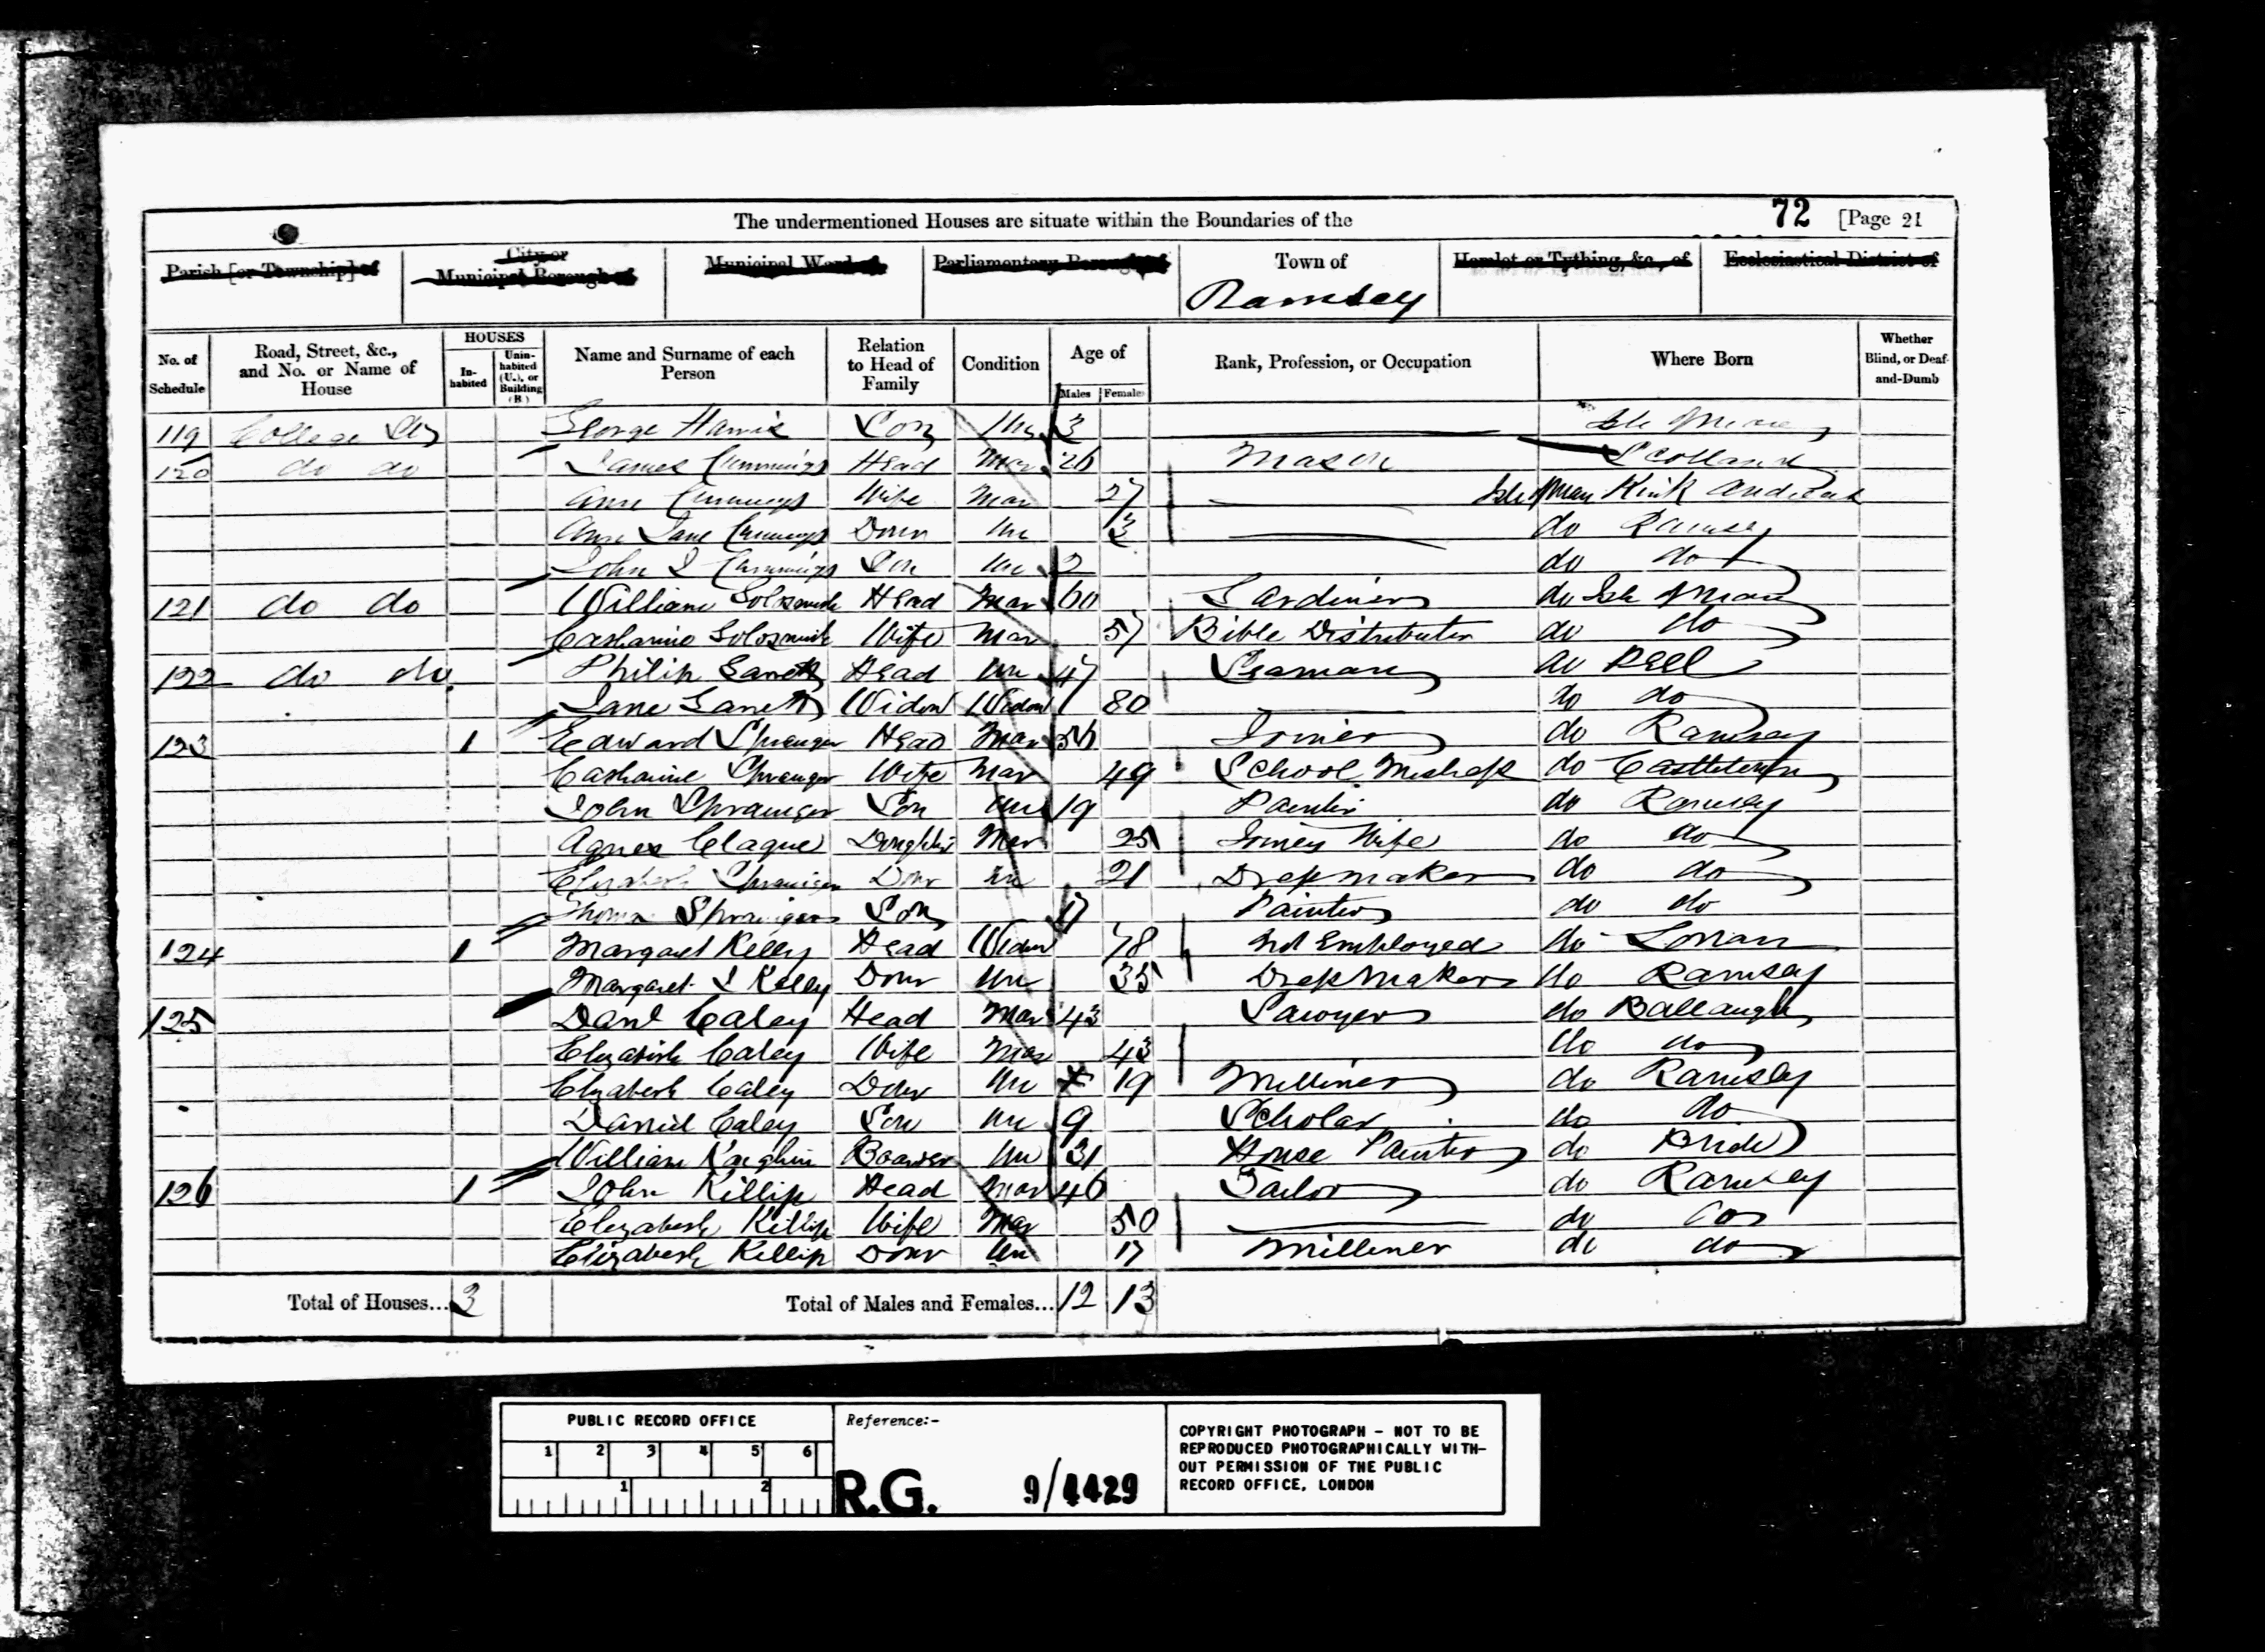 The undermentioned Houses are situate within the Boundaries of the 72 [Page 21
Parish [or Township] of City or Municipal Borough of Municipal Ward of Parliamentary Borough of Town of Ramsey Hamlet or Tything, &c., of Ecclesiastical District of
No. of Schedule Road, Street, &c., and No. or Name of House HOUSES In-habited Unin-habited (U.), or Building (B.) Name and Surname of each Person Relation to Head of Family Condition Age of Males Females Rank, Profession, or Occupation Where Born Whether Blind, or Deaf-and-Dumb
119 College George Harris Son Un 3 Isle Man
120 do do James Cummings Head Mar 26 Mason Scotland
Ann Cummings Wife Mar 27 Isle Man Kirk Andreas
Ann Jane Cummings Daur Un 3 do Ramsey
John J Cummings Son Un 2 do do
121 do do William Head Mar 60 Gardiner do Isle Man
Catharine Wife Mar 57 Bible Distributer do do
122 do do Philip Head Un 47 Seaman do Peel
Jane Widow Widow 80 do do
123 1 Edward Head Mar Joiner do Ramsey
Catharine Wife Mar 49 School Mistress do Castletown
John Son Un 19 Painter do Ramsey
Agnes Clague Daughter Mar 25 Joiner Wife do do
Elizabeth Daur Un 21 Dressmaker do do
Thomas Son 17 Painter do do
124 1 Margaret Kelly Head Widow 78 Not Employed do Lonan
Margaret J Kelly Daur Un 35 Dressmaker do Ramsey
125 Danl Caley Head Mar 43 Sawyer do Ballaugh
Elizabeth Caley Wife Mar 43 do do
Elizabeth Caley Daur Un 19 Milliner do Ramsey
Daniel Caley Son Un 9 Scholar do do
William Boarder Un 31 House Painter do Bride
126 1 John Killip Head Mar 46 Tailor do Ramsey
Elizabeth Killip Wife Mar 50 do do
Elizabeth Killip Daur Un 17 Milliner do do
Total of Houses... 3 Total of Males and Females... 12 13
PUBLIC RECORD OFFICE
1 2 3 4 5 6
1 2
Reference:-
R.G. 9/4429
COPYRIGHT PHOTOGRAPH - NOT TO BE
REPRODUCED PHOTOGRAPHICALLY WITH-
OUT PERMISSION OF THE PUBLIC
RECORD OFFICE, LONDON